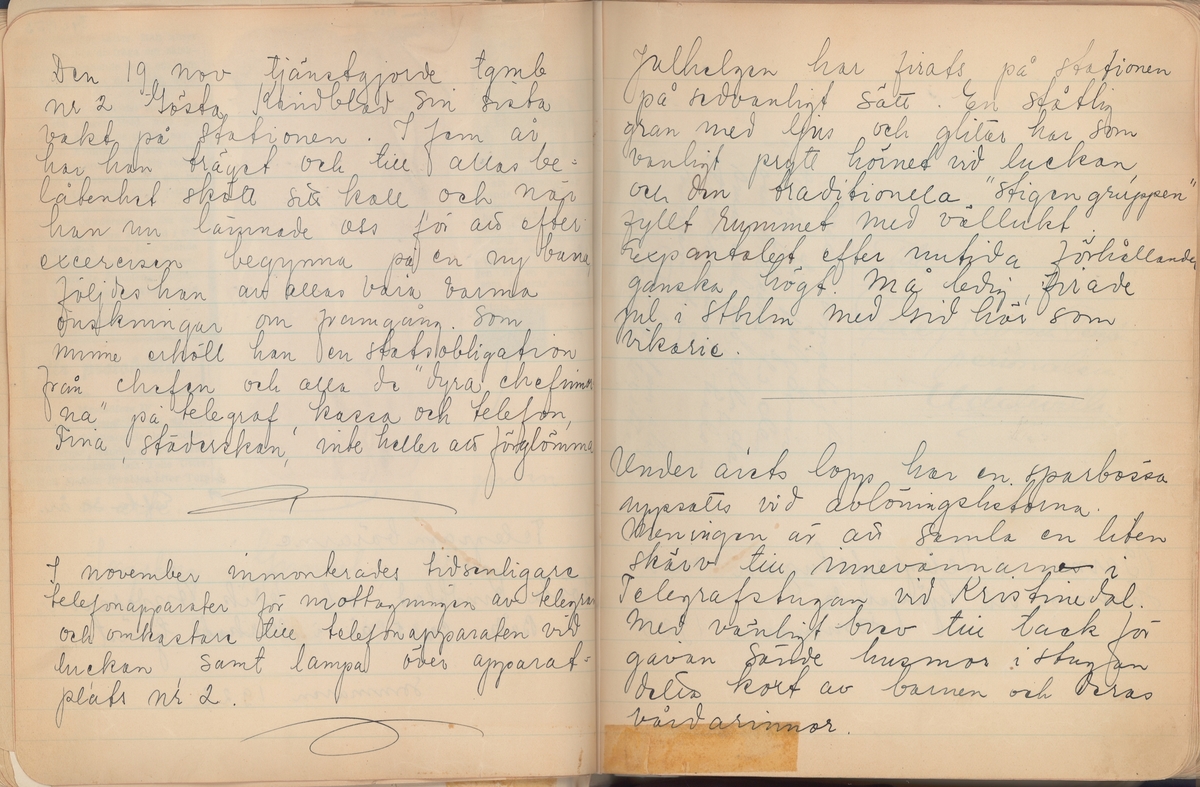 Den 19 nov tjänstgjorde tgmb
nr 2 Gösta Kindblad sin sista
vakt på stationen. I fem år
har han träget och till allas be=
låtenhet skött sitt kall och när
han nu lämnade oss för att efter
excercisen begynna på en ny bana,
följdes han av allas våra varma
önskningar om framgång. Som
minne erhöll han en statsobligation
från chefen och alla de "dyra chefinnor
na" på telegraf, kassa och telefon,
Fina, städerskan, inte heller att förglömma
I november inmonterades tidsenligare
telefonapparater för mottagningen av telegram
och omkastare till telefonapparaten vid
luckan samt lampa över apparat=
plats nr 2.
Julhelgen har firats på stationen
på sedvanligt sätt. En ståtlig
gran med ljus och glitter har som
vanligt prytt hörnet vid luckan,
och den traditionella "Stigengruppen"
fyllt rymmet med vällukt.
Expantalet efter nutida förhållanden
ganska högt. Må ledig, firade
jul i Sthlm med Sid här som
vikarie.
Under årets lopp har en sparbössa
uppsatts vid avlöningslistorna.
Meningen är att samla en liten
skärv till innevånnarne i
Telegrafstugan vid Kristinedal.
Med vänligt brev till tack för
gåvan sände husmor i stugan
detta kort av barnen och deras
vårdarinnor.